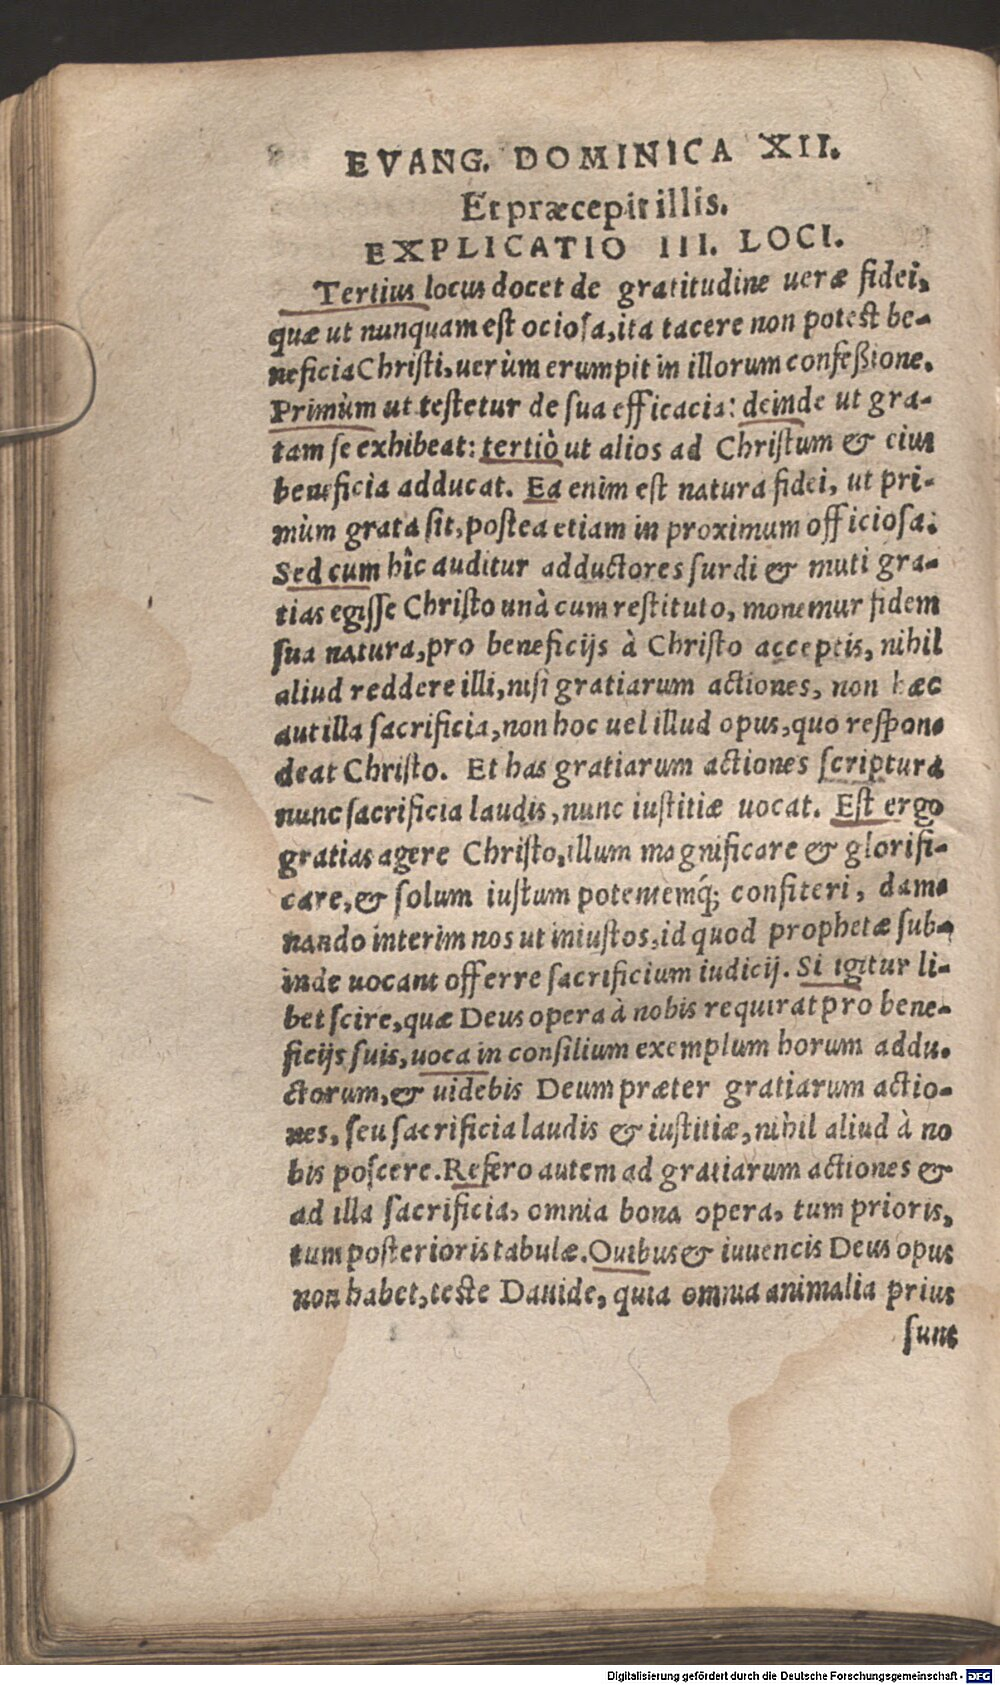 EVANG. DOMINICA XII.
Et præcepit illis.
EXPLICATIO III. LOCI.
Tertius locus docet de gratitudine ueræ fidei,
quæ ut nunquam est ociosa, ita tacere non potest be-
neficia Christi, uerùm erumpit in illorum confeßione.
Primùm ut testetur de sua efficacia: deinde ut gra-
tam se exhibeat: tertiò ut alios ad Christum & eius
beneficia adducat. Ea enim est natura fidei, ut pri-
mùm grata sit, postea etiam in proximum officiosa.
Sed cum hîc auditur adductores surdi & muti gra-
tias egisse Christo unà cum restituto, monemur fidem
sua natura, pro beneficijs à Christo acceptis, nihil
aliud reddere illi, nisi gratiarum actiones, non hæc
aut illa sacrificia, non hoc uel illud opus, quo respon-
deat Christo. Et has gratiarum actiones scriptura
nunc sacrificia laudis, nunc iustitiæ uocat. Est ergo
gratias agere Christo, illum magnificare & glorifi-
care, & solum iustum potentemq́; confiteri, dam-
nando interim nos ut iniustos, id quod prophetæ sub-
inde uocant offerre sacrificium iudicij. Si igitur li-
bet scire, quæ Deus opera à nobis requirat pro bene-
ficijs suis, uoca in consilium exemplum horum addu-
ctorum, & uidebis Deum præter gratiarum actio-
nes, seu sacrificia laudis & iustitiæ, nihil aliud à no
bis poscere. Refero autem ad gratiarum actiones &
ad illa sacrificia, omnia bona opera, tum prioris,
tum posterioris tabulæ. Ouibus & iuuencis Deus opus
non habet, teste Dauide, quia omnia animalia prius
sunt
Digitalisierung gefördert durch die Deutsche Forschungsgemeinschaft - DFG